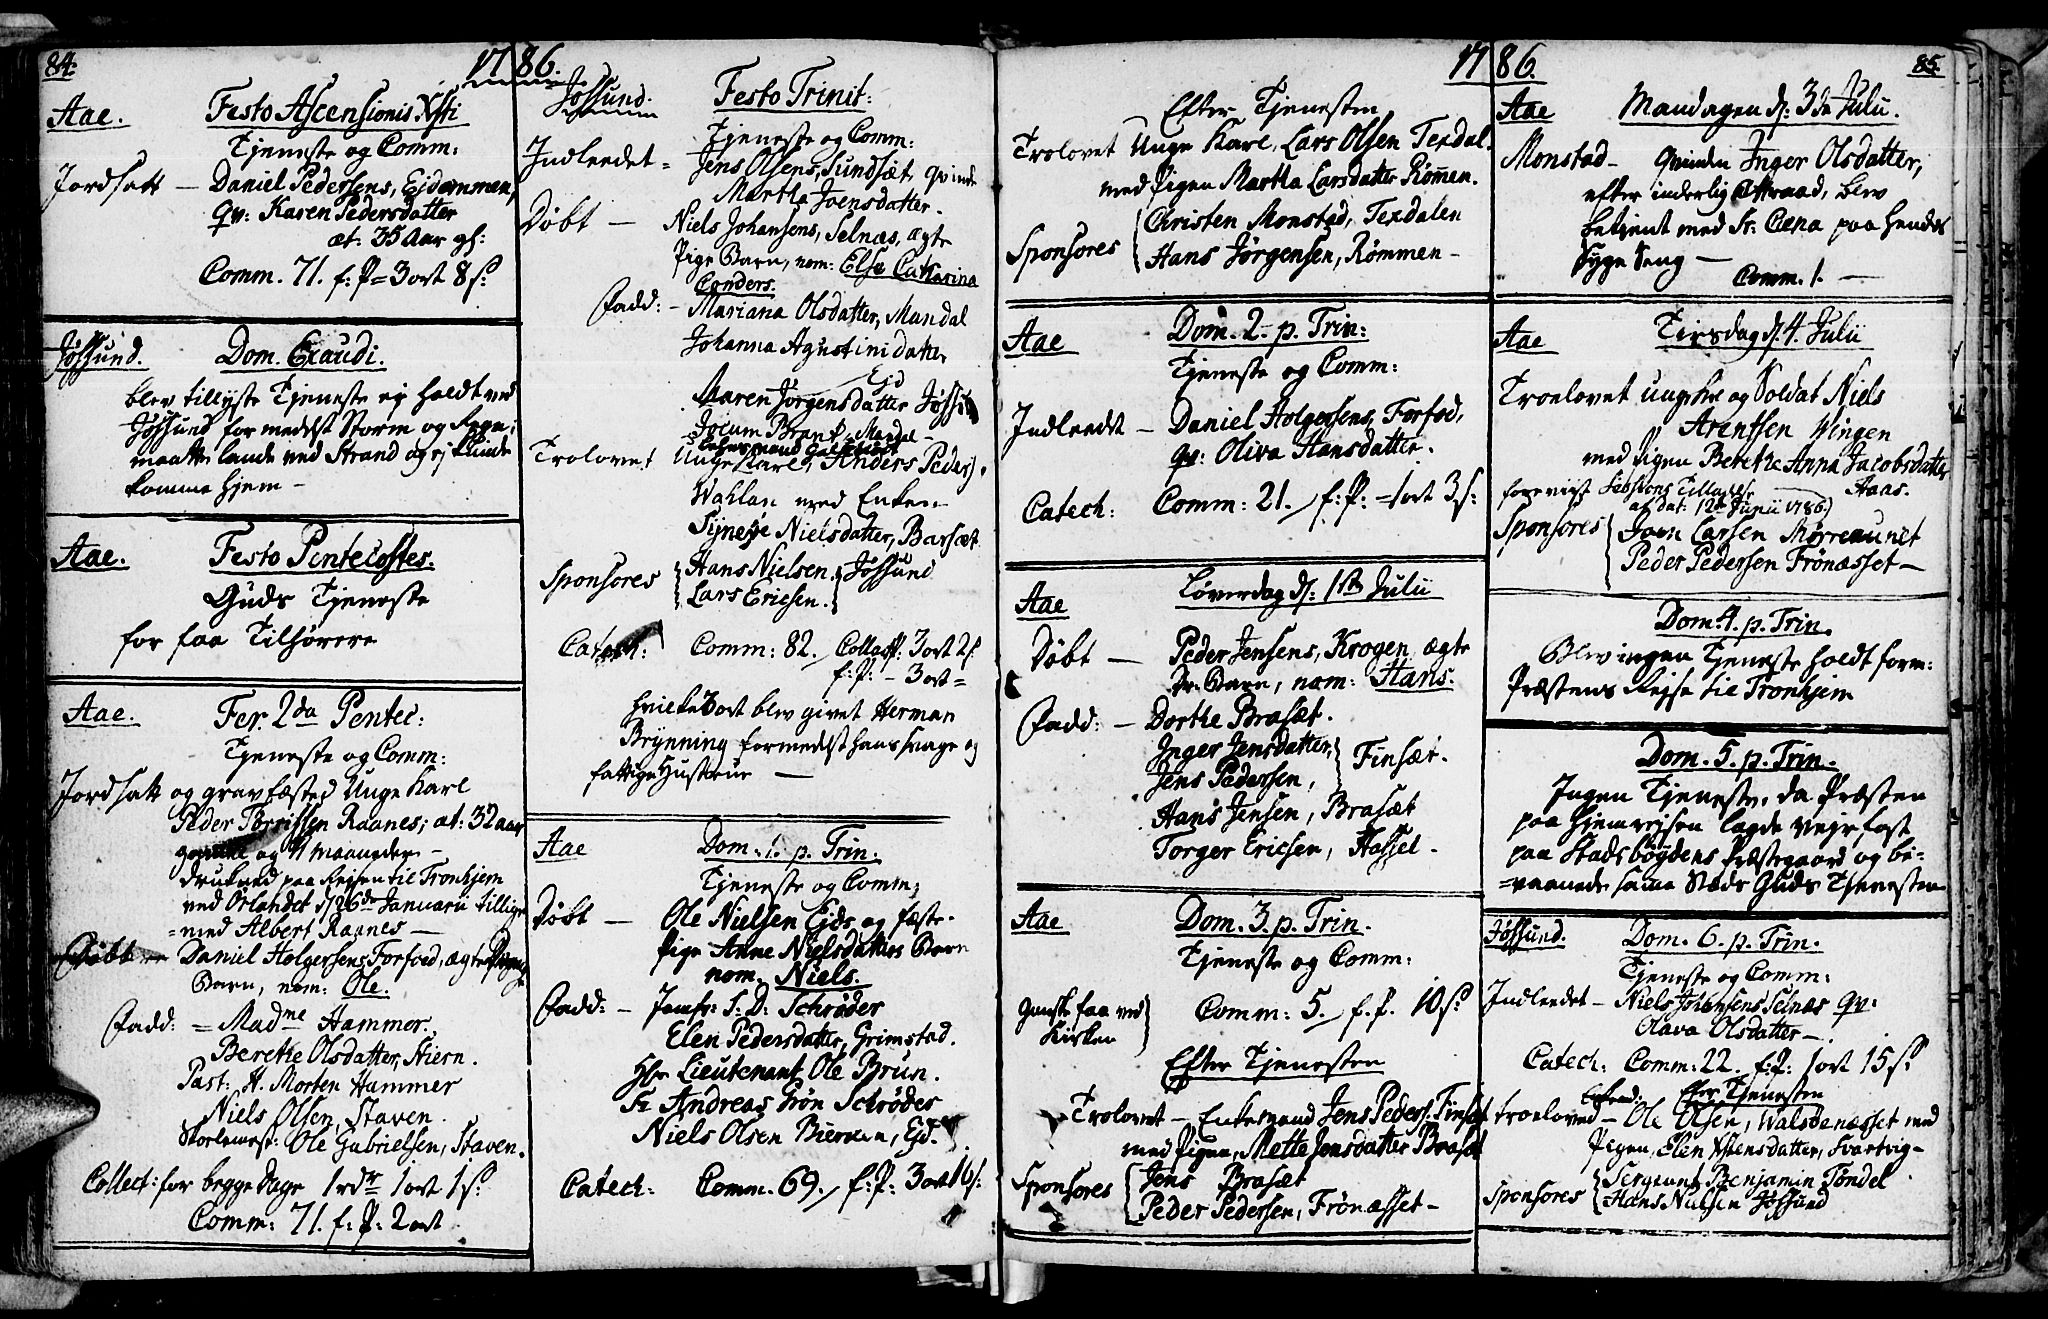 84.
1786.
Aae. Festo Ascensionis Xsti
Tjeneste og Comm:
Jordsatt — Daniel Pedersens, Ejdemmen,
qv: Karen Pedersdatter
æt: 35 Aar gl:
Comm. 71. f: P= 3 ort 8 s:
Jøssund. Dom. Exaudi.
blev tillyste Tjeneste ej holdt ved
Jøssund formedelst Storm og
maatte lande ved Strand og ej kunde
komme hjem —
Aae. Festo Pentecostes.
Guds Tjeneste
for faa Tilhørere
Aae. Fer. 2da Pentec:
Tjeneste og Comm:
Jordsatt og gravfæsted Unge Karl
Peder Raanes; æt: 32 aar
og 11 maaneder —
drukned paa Rejsen til Tronhjem
ved Ørlandet d 26de Januarii tillige
=med Albert Raanes —
Døbt — Daniel Holgersens Forfod, ægte
Barn, nom: Ole.
Fadd: = Madme Hammer.
Berethe Olsdatter, Stiern.
Past: H. Morten Hammer
Niels Olsen, Staven.
Ole Gabrielsen, Staven.
Collect: for begge Dage 1 rdr 1 ort 1 s:
Comm: 71. f: P: 2 ort
Jøssund. Festo Trinit:
Tjeneste og Comm:
Indleedet = Jens Olsens, Sundsæt qvinde
Martha Joensdatter.
Døbt — Niels Johansens, Selnæs, ægte
Pige Barn, nom: Else Catharina
Conders.
Fadd: — Mariana Olsdatter, Mandal
Johanna Agustinidatter
Ejd
Maren Jørgensdatter Jøssund
Jocum Brant Mandal —
Trolovet Unge Karl, Anders Peders:
Wahlan med Enken
Synnøje Nielsdatter, Barsæt
Sponsores Hans Nielsen. Jøssund
Lars Ericsen.
Catech: Comm: 82. Collatt: 3 ort 2 s
f: P: — 3 ort =
hvilke 3 ort blev givet Herman
Brynning formedelst hans svage og
fattige Hustrue —
Aae Dom. 1. p. Trin.
Tjeneste og Comm:
Døbt — Ole Nielsen Ejds og fæste-
Pige Anne Nielsdatters Barn
nom. Niels.
Fadd: — Jomfr: S: D: Schrøder
Elen Pedersdatter, Grimstad.
Hr Lieutenant Ole Brun.
Sr Andreas Grøn Schrøder
Niels Olsen Bierken, Ejd.
Catech: Comm. 69. f: P: 3 ort 16 s:
1786.
85.
Efter Tjenesten
Trolovet Unge Karl, Lars Olsen Terdal.
med Pigen Martha Larsdatter Rømmen.
Sponsores Christen Monstad, Terdalen
Hans Jørgensen, Rømmen —
Aae Dom. 2. p. Trin:
Tjeneste og Comm:
Indleedt — Daniel Holgersens, Forfod,
qv: Oliva Hansdatter.
Catech: Comm: 21. f: P: = 1 ort 3 s:
Aae Løverdag d: 1ste Julii
Døbt — Peder Jensens, Krogen, ægte
Dr. Barn, nom: Hans.
Fadd: — Dorthe Brasæt.
Inger Jensdatter, Finsæt.
Jens Pedersen,
Hans Jensen, Brasæt
Torger Ericsen, Hassel.
Aae Dom. 3. p. Trin.
Tjeneste og Comm:
Ganske faa ved Kirken Comm: 5. f. P. 10 s:
Efter Tjenesten
Trolovet — Enkemand Jens Peders: Finsæt
med Pigen, Mette Jonsdatter Brasæt
Sponsores Jens Brasæt
Peder Pedersen, Frönæsset —
Aae Mandagen d: 3de Julii.
Monstad — Qvinden Inger Olsdatter,
efter inderlig Attraad, blev
betjent med St: Cæna paa hendes
Syge Seng —
Comm. 1. —
Aae Tirsdag d. 4. Julii
Troelovet ungkr og Soldat Niels
Arentssen Wingen
med Pigen Berethe Anna Jacobsdatter
Aas.
forevist Sessions Tilladelse
af dat: 12te Junii 1786.
Sponsores Joen Larsen Mørreaunet
Peder Pedersen Frönæsset —
Dom. 4. p. Trin.
Blev ingen Tjeneste holdt form:
Præstens Rejse til Tronhjem
Dom. 5. p. Trin.
Ingen Tjeneste, da Præsten
paa hjemrejsen lagde vejrfast
paa Stadsbøgdens Præstegaard og bi-
=vaanede samme Stæds Guds Tjenesten
Jøssund. Dom. 6. p. Trin.
Tjeneste og Comm:
Indleedet — Niels Johansens Selnæs qv:
Olava Olsdatter —.
Catech: Comm: 22. f: P: 1 ort 15 s:
Efter Tjenesten
troeloved — Ole Olsen, Walsøenæsset med
Pigen, Elen Xstensdatter, Svartvig —
Sponsores Sergeant Benjamin Tøndel
Hans Nielsen Jøssund